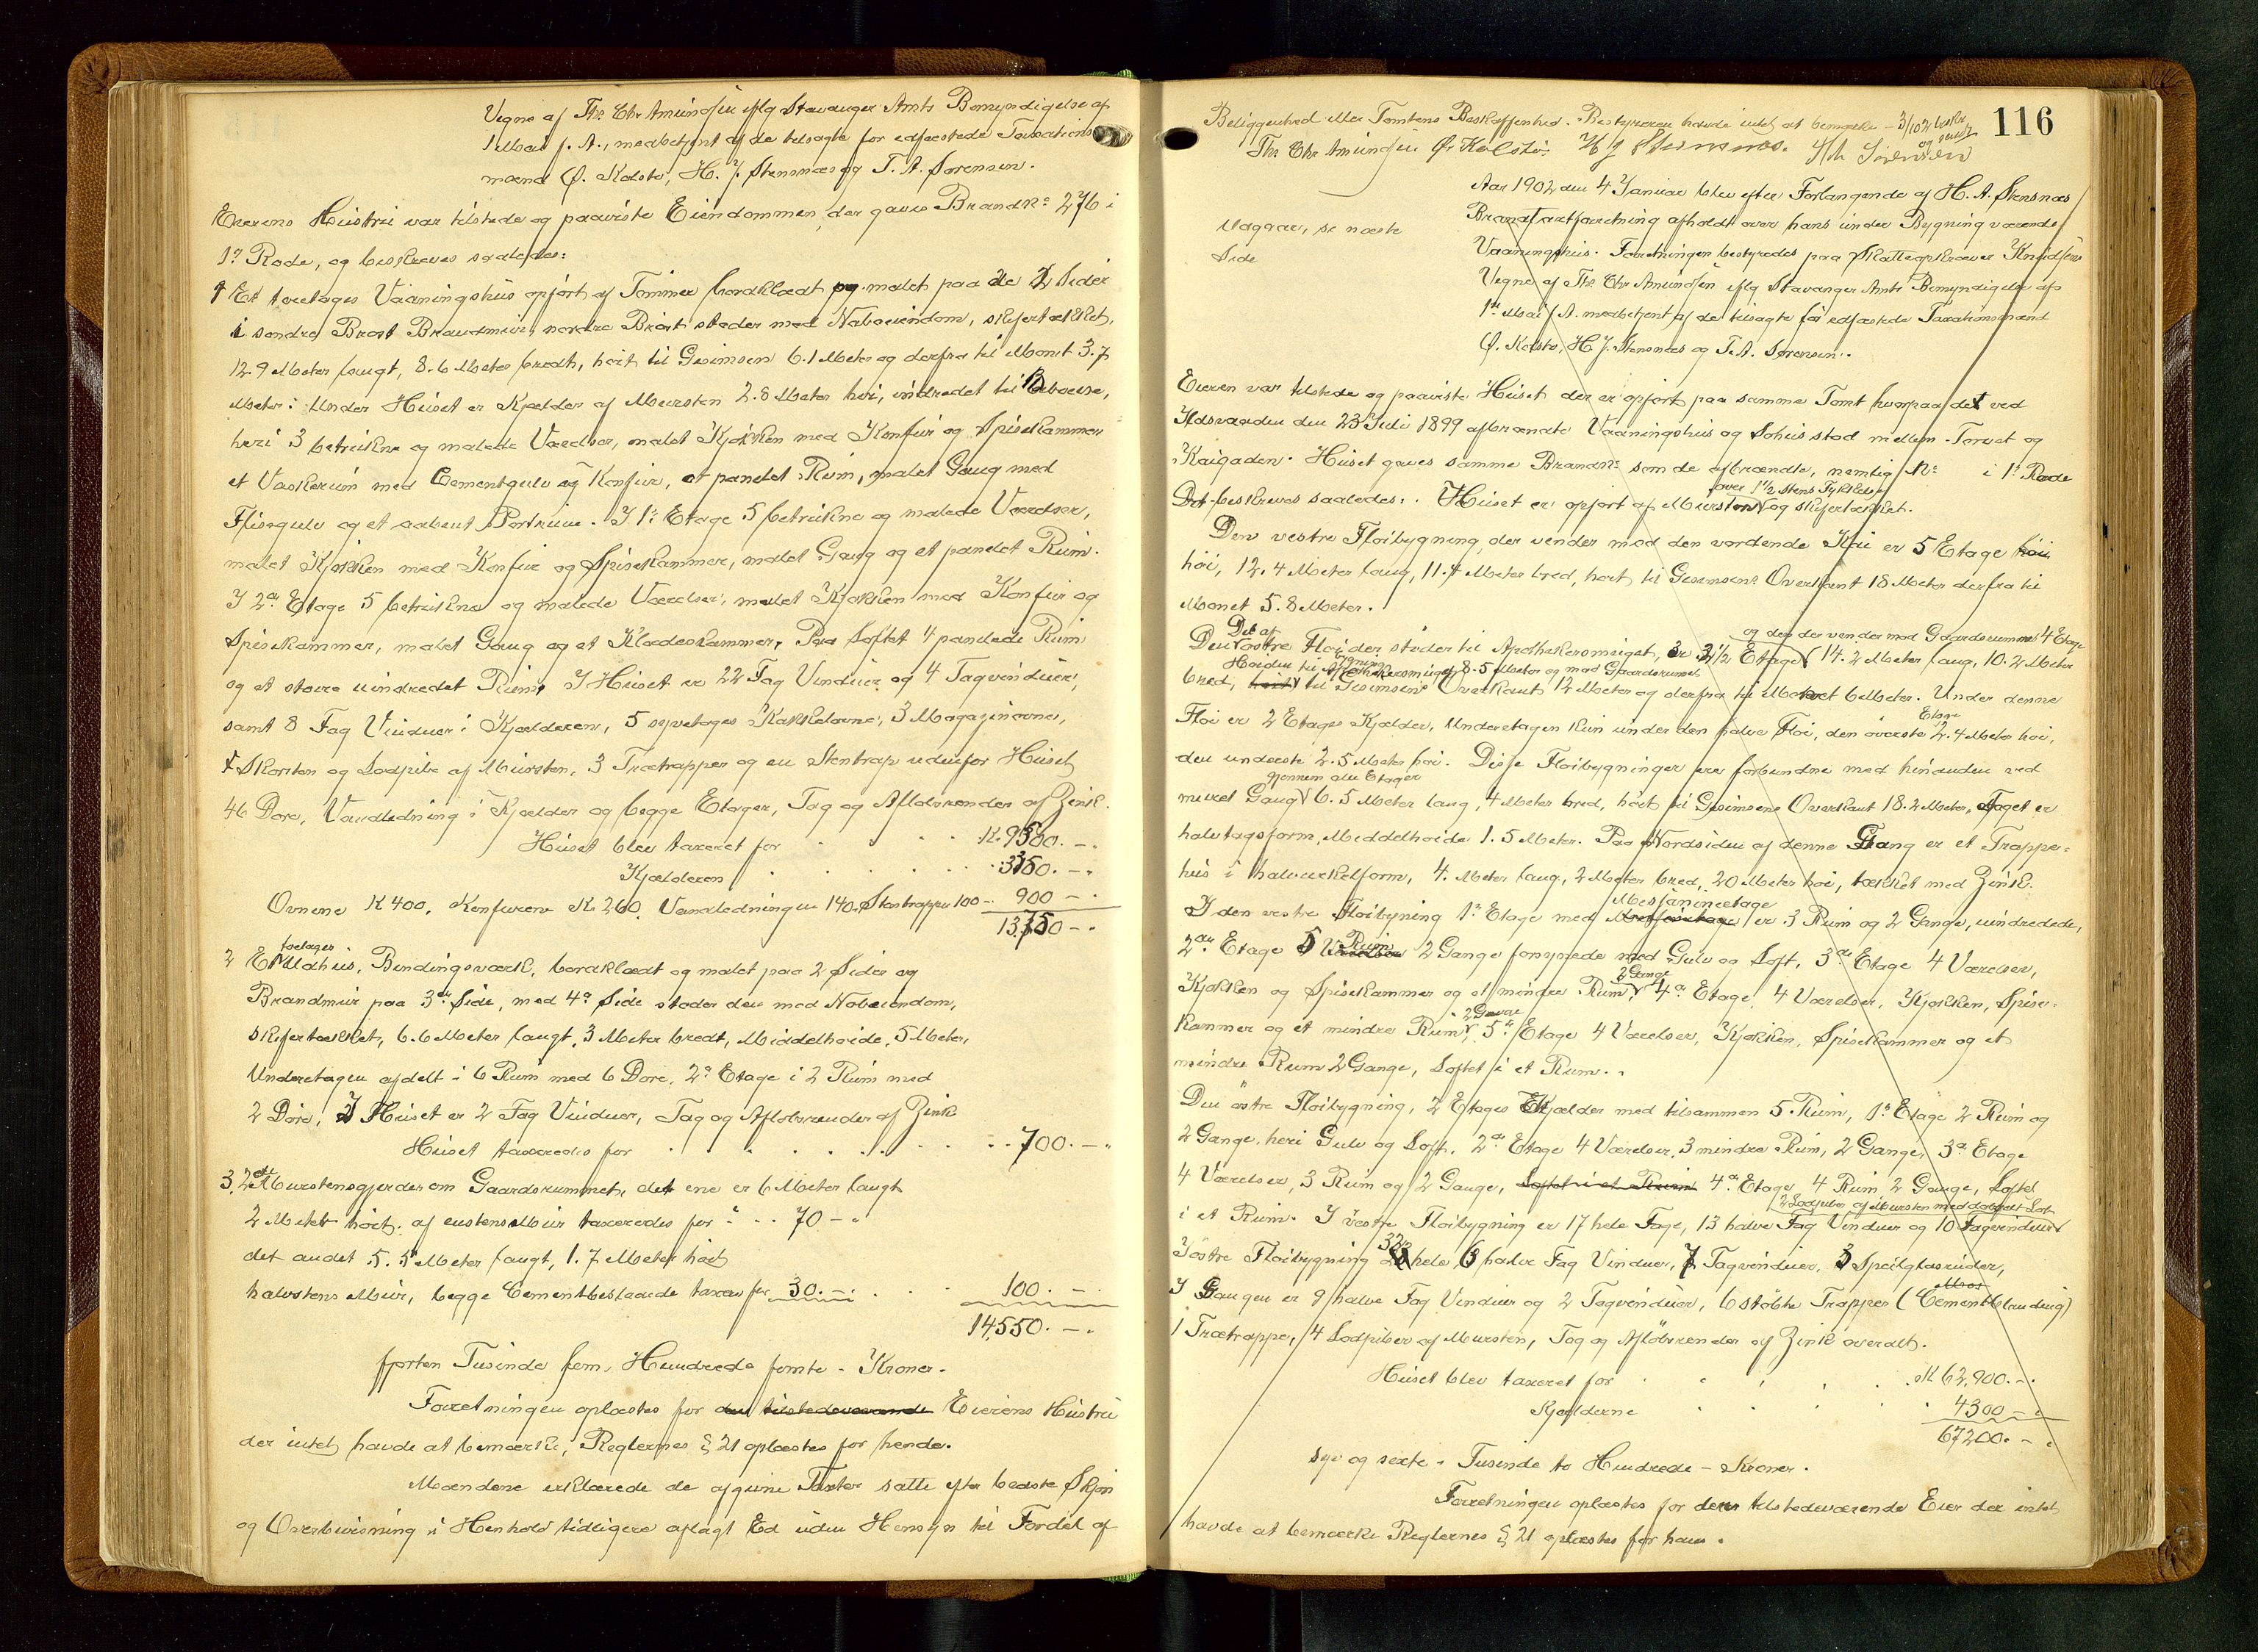 Vegne af Thr. Chr. Amundsen iflg Stavanger Amts Bemyndigelse af
1 Mai f. A., medbetjent af de tilsagte for edfæstede Taxations-
mænd Ø. Kolstø, H. J. Stensnæs og T. A. Sørensen.
Eierens Hustru var tilstede og paaviste Eiendommen, der gaves Brand№ 276 i
1ª Rode, og beskreves saaledes:
1 Et toetages Vaaningshus opført af Tømmer bordklædt og malet paa de 2 Sider
i søndre Bröst Brandmur, nordre Bröst støder mod Naboeiendom, skifertækket,
12.9 Meter langt, 8.6 Meter bredt, høit til Gesimsen 6.1 Meter og derfra til Mønet 3.7
Meter. Under Huset er Kjælder af Mursten 2.8 Meter høi, indredet til Beboelse,
heri 3 betrukne og malede Værelser, malet Kjøkken med Komfur og Spisekammer
et Vaskerum med Cementgulv og Komfur, et panelet Rum, malet Gang med
Flisegulv og et aabent Portrum. I 1ª Etage 5 betrukne og malede Værelser,
malet Kjøkken med Komfur og Spisekammer, malet Gang og et panelet Rum.
I 2ª Etage 5 betrukne og malede Værelser, malet Kjøkken med Komfur og
Spisekammer, malet Gang og et Klædeskammer, Paa Loftet 4 panelede Rum
og et større uindredet Rum. I Huset er 22 Fag Vinduer og 4 Tagvinduer,
samt 8 Fag Vinduer i Kjælderen, 5 syvetages Kakkelovne, 3 Magazinovne,
1 Skorsten og Lodpibe af Mursten, 3 Trætrapper og en Stentrap udenfor Huset
46 Døre, Vandledning i Kjælder og begge Etager, Tag og Afløbsrender af Zink.
Huset blev taxeret for K. 9500.–
Kjælderen 3350.–
Ovnene K 400, Komfurene K 260 Vandledningen 140, Stentrappe 100 – 900 –
13,750 –
2 Et toetages Udhus, Bindingsværk, bordklædt og malet paa 2 Sider og
Brandmur paa 3die Side, med 4ª Side støder det mod Naboeiendom,
skifertækket, 6.6 Meter langt, 3 Meter bredt, Middelhøide 5 Meter,
Underetagen afdelt i 6 Rum med 6 Døre, 2ª Etage i 2 Rum med
2 Døre, I Huset er 2 Fag Vinduer, Tag og Afløbsrender af Zink
Huset taxeredes for 700.–
3. 2de Murstensgjerder om Gaardsrummet, det ene er 6 Meter langt
2 Meter høit, af enstens Mur taxeredes for 70 –
det andet 5.5 Meter langt, 1.7 Meter høit
halvstens Mur, begge Cementbeslaaede taxeret for 30.– 100.–
14,550.–
fjorten Tusinde fem Hundrede femti – Kroner.
Forretningen oplæstes for den tilstedeværende Eierens Hustru
der intet havde at bemærke, Reglernes § 21 oplæstes for hende.
Mændene erklærede de afgivne Taxter satte efter bedste Skjøn
og Overbevisning i Henhold tidligere aflagt Ed uden Hensyn til Fordel af
116
Beliggenhed eller Tomtens Beskaffenhed. Bestyreren havde intet at bemærke – 3/1 02 beskr. og sendt
Thr. Chr Amundsen Ø. Kolstø. H J Stensnæs. T A Sørensen
Aar 1902 den 4 Januar blev efter Forlangende af H. A. Stensnæs
Brandtaxtforretning afholdt over hans under Bygning værende
Vaaningshus. Forretningen bestyredes paa Skatteopkræver Knudsens
Vegne af Thr. Chr Amundsen iflg Stavanger Amts Bemyndigelse af
1ste Mai f. A. medbetjent af de tilsagte for edfæstede Taxationsmænd
Ø. Kolstø, H. J. Stensnæs og T. A. Sørensen.
Udgaar, se næste
Side
Eieren var tilstede og paaviste Huset, der er opført paa samme Tomt hvorpaa det ved
Ildsvaaden den 23 Juli 1899 afbrændte Vaaningshus og Søhus stod mellem Torvet og
Kaigaden. Huset gaves samme Brand№ som de afbrændte, nemlig № i 1ª Rode
Det beskreves saaledes: Huset er opført af Mursten over 1½ Stens Tykkelse og skifertækket.
Den vestre Fløibygning, der vender mod den vordende Kai er 5 Etage høi
høi, 12.4 Meter lang, 11.4 Meter bred, høit til Gesimsens Overkant 18 Meter derfra til
Mønet 5.8 Meter.
Del af
og den der vender mod Gaardsrummet 4 Etage
Den østre Fløi der støder til Apothekersmuget, er 3½ Etage 14.2 Meter lang, 10.2 Meter
Høiden til Apothekersmuget 8.5 Meter og mod Gaardsrummet
bred, høit til Gesimsens Overkant 12 Meter og derfra til Mønet 6 Meter. Under denne
Fløi er 2 Etages Kjælder, Underetagen kun under den halve Fløi, den øverste Etage 2.4 Meter høi,
den underste 2.5 Meter høi. Disse Fløibygninger ere forbundne med hinanden ved
gjennem alle Etager
muret Gang 6.5 Meter lang, 4 Meter bred, høit til Gesimsens Overkant 18.2 Meter, Taget er
halvtagsform, Middelhøide 1.5 Meter. Paa Nordsiden af denne Gang er et Trappe-
hus i halvcirkelform, 4. Meter lang, 2 Meter bred, 20 Meter høi, tækket med Zink.
Messanineetage
I den vestre Fløibyning 1ª Etage med er 3 Rum og 2 Gange, uindredede,
2den Etage 5 Værelser Rum 2 Gange forsynede med Gulv og Loft, 3die Etage 4 Værelser,
Kjøkken og Spisekammer og et mindre Rum, 2 Gange 4ª Etage 4 Værelser, Kjøkken, Spise-
kammer og et mindre Rum, 2 Gange 5te Etage 4 Værelser, Kjøkken, Spisekammer og et
mindre Rum 2 Gange, Loftet i et Rum.
Den östre Fløibygning, 2 Etages Kjælder med tilsammen 5 Rum, 1ª Etage 2 Rum og
2 Gange, heri Gulv og Loft, 2den Etage 4 Værelser, 3 mindre Rum, 2 Gange, 3ª Etage
4 Værelser, 3 Rum og 2 Gange, Loftet i et Rum 4ª Etage 4 Rum 2 Gange, Loftet
2 Lodpiber af Mursten med
i et Rum. I vestre Fløibygning er 17 hele Fage, 13 halve Fag Vinduer og 10 Tagvinduer
I östre Fløibygning 32 hele 6 halve Fag Vinduer, 7 Tagvinduer, 3 Speilglasruder,
I Gangen er 9 halve Fag Vinduer og 2 Tagvinduer, 6 støbte Trapper (Cementblanding)
1 Trætrappe, 4 Lodpiber af Mursten, Tag og Afløbsrender af Zink overalt.
Huset blev taxeret for K 62,900.–
Kjælderne 4300 –
67200.–
syv og sexti – Tusinde to Hundrede – Kroner.
Forretningen oplæstes for den tilstedeværende Eier der intet
havde at bemærke Reglernes § 21 oplæstes for ham.